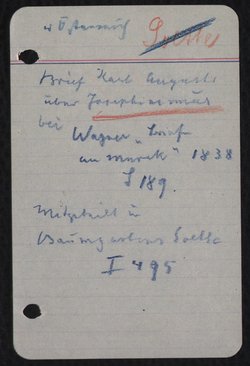 Österreich
Goethe
Brief Karl Augusts
über Josephinismus
bei Wagner "Briefe
an Merck" 1838
S 189.
Mitgeteilt in
Baumgartens Goethe
I 495